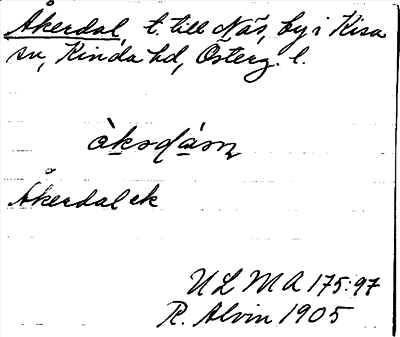 Åkerdal, t. till Näs, by i Kisa
sn, Kinda hd, Österg. l.
Åkerdal ek
ULMA 175:97
R. Alvin 1905